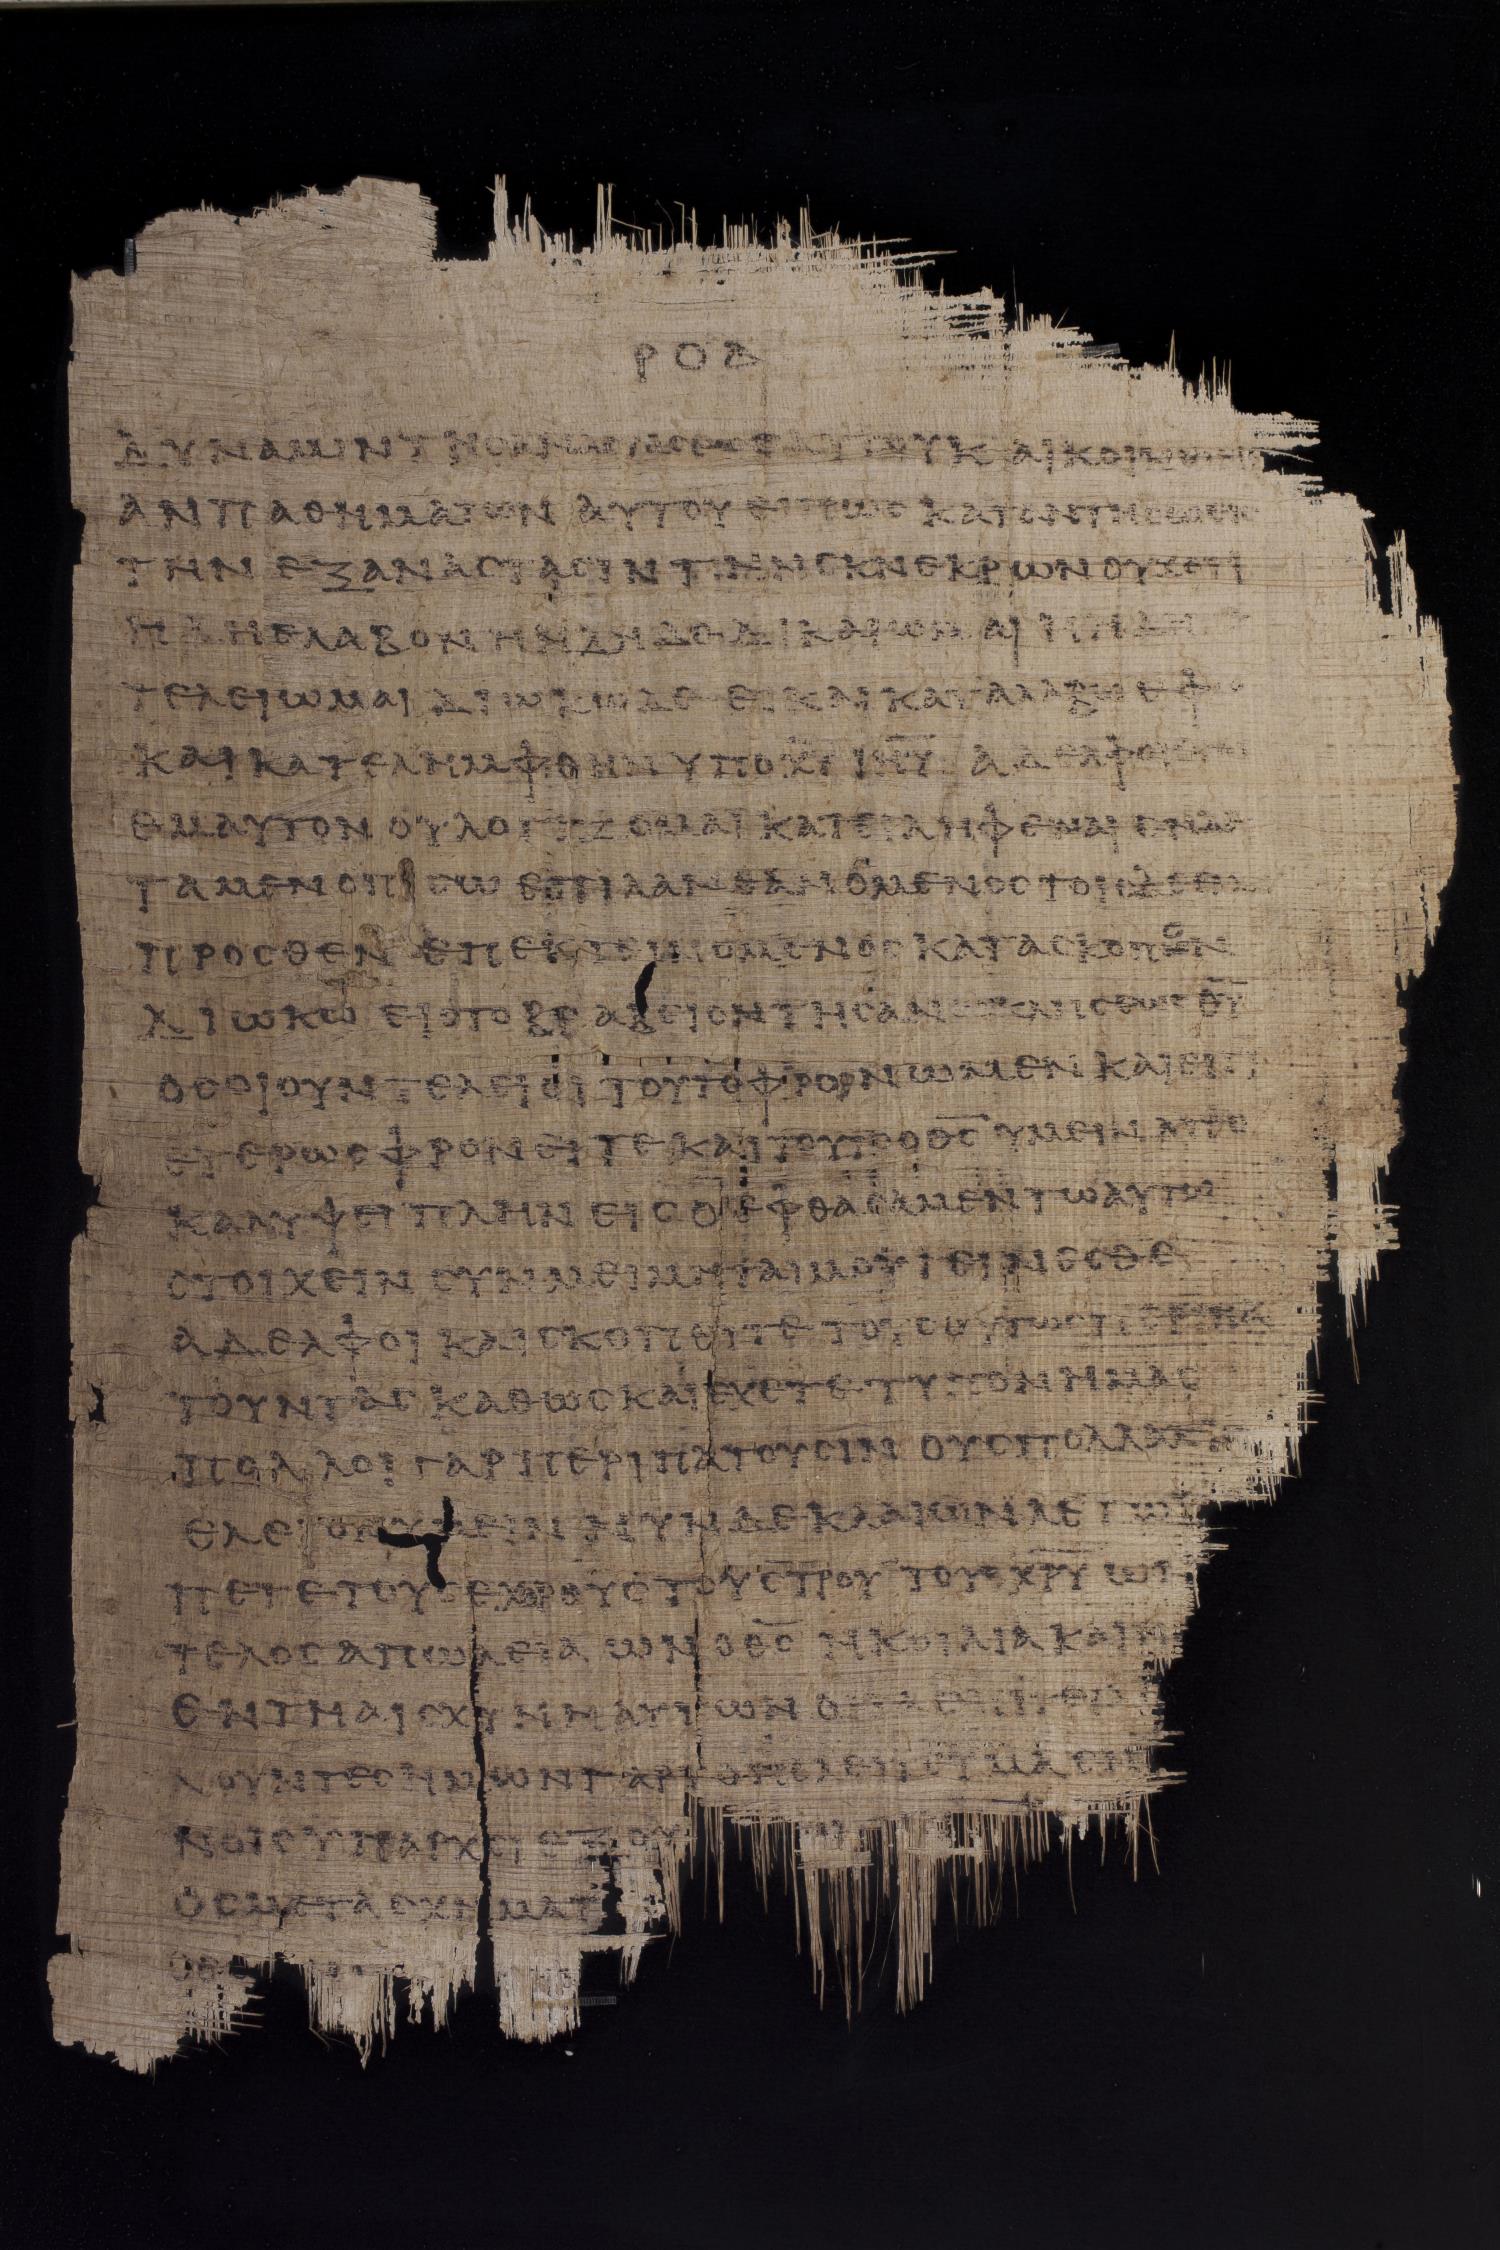 ΡΟΔ
ΔΥΝΑΜΙΝ ΤΗΣ ΑΝΑΣΤΑΣΕΩΣ ΑΥΤΟΥ ΚΑΙ
ΑΝ ΠΑΘΗΜΑΤΩΝ ΑΥΤΟΥ ΕΙ ΠΩΣ ΚΑΤΑΝΤΗΣΩ ΕΙΣ
ΤΗΝ ΕΞΑΝΑΣΤΑΣΙΝ ΤΗΝ ΕΚ ΝΕΚΡΩΝ ΟΥΧ ΟΤΙ
ΕΛΑΒΟΝ Η ΗΔΗ ΔΕΔΙΚΑΙΩΜΑΙ Η ΗΔΗ
ΤΕΛΕΙΩΜΑΙ ΔΙΩΚΩ ΔΕ ΕΙ ΚΑΙ ΚΑΤΑΛΑΒΩ ΕΦ
ΚΑΙ ΚΑΤΕΛΗΜΦΘΗΝ ΥΠΟ ΧΡΥ ΙΗΥ ΑΔΕΛΦΟΙ
ΕΜΑΥΤΟΝ ΟΥ ΛΟΓΙΖΟΜΑΙ ΚΑΤΕΙΛΗΦΕΝΑΙ ΕΝ ΔΕ
ΤΑ ΜΕΝ ΟΠΙΣΩ ΕΠΙΛΑΝΘΑΝΟΜΕΝΟΣ ΤΟΙΣ ΔΕ ΕΜ
ΠΡΟΣΘΕΝ ΕΠΕΚΤΕΙΝΟΜΕΝΟΣ ΚΑΤΑ ΣΚΟΠΟΝ
ΔΙΩΚΩ ΕΙΣ ΤΟ ΒΡΑΒΕΙΟΝ ΤΗΣ ΑΝΩ ΚΛΗΣΕΩΣ ΘΥ
ΟΣΟΙ ΟΥΝ ΤΕΛΕΙΟΙ ΤΟΥΤΟ ΦΡΟΝΩΜΕΝ ΚΑΙ ΕΙ ΤΙ
ΕΤΕΡΩΣ ΦΡΟΝΕΙΤΕ ΚΑΙ ΤΟΥΤΟ Ο ΘΣ ΥΜΕΙΝ ΑΠΟ
ΚΑΛΥΨΕΙ ΠΛΗΝ ΕΙΣ Ο ΕΦΘΑΣΑΜΕΝ ΤΩ ΑΥΤΩ
ΣΤΟΙΧΕΙΝ ΣΥΝΜΕΙΜΗΤΑΙ ΜΟΥ ΓΕΙΝΕΣΘΕ
ΑΔΕΛΦΟΙ ΚΑΙ ΣΚΟΠΕΙΤΕ ΤΟΥΣ ΟΥΤΩΣ ΠΕΡΙΠΑ
ΤΟΥΝΤΑΣ ΚΑΘΩΣ ΚΑΙ ΕΧΕΤΕ ΤΥΠΟΝ ΗΜΑΣ
ΠΟΛΛΟΙ ΓΑΡ ΠΕΡΙΠΑΤΟΥΣΙΝ ΟΥΣ ΠΟΛΛΑΚΙΣ
ΕΛΕΓΟΝ ΥΜΕΙΝ ΝΥΝ ΔΕ ΚΛΑΙΩΝ ΛΕΓΩ
ΤΟΥΣ ΕΧΘΡΟΥΣ ΤΟΥ ΣΤΡΟΥ ΤΟΥ ΧΡΥ ΩΝ
ΤΕΛΟΣ ΑΠΩΛΕΙΑ ΩΝ Ο ΘΣ Η ΚΟΙΛΙΑ ΚΑΙ Η
ΕΝ ΤΗ ΑΙΣΧΥΝΗ ΑΥΤΩΝ ΟΙ ΤΑ ΕΠΙΓΕΙΑ
ΝΟΥΝΤΕΣ ΗΜΩΝ ΓΑΡ ΤΟ ΠΟΛΕΙΤΕΥΜΑ ΕΝ
ΝΟΙΣ ΥΠΑΡΧΕΙ ΕΞ ΟΥ
ΟΣ ΜΕΤΑΣΧΗΜΑΤ